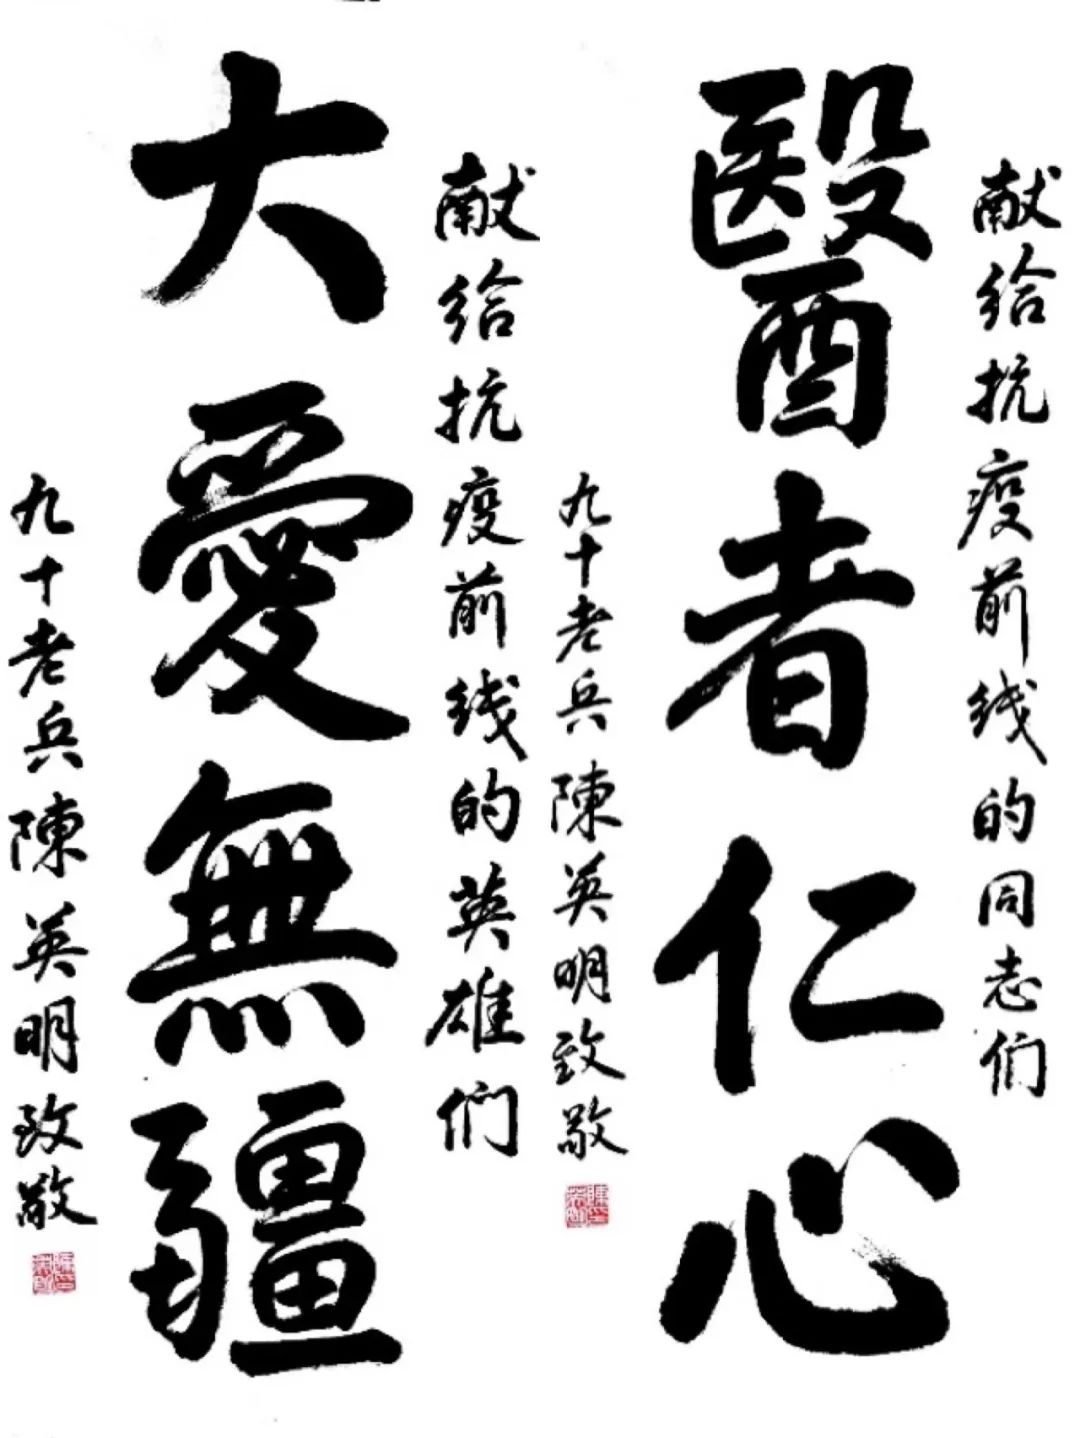 献给抗疫前线的同志们
醫者仁心
九十老兵陳英明致敬
献给抗疫前线的英雄们
大愛無疆
九十老兵陳英明致敬